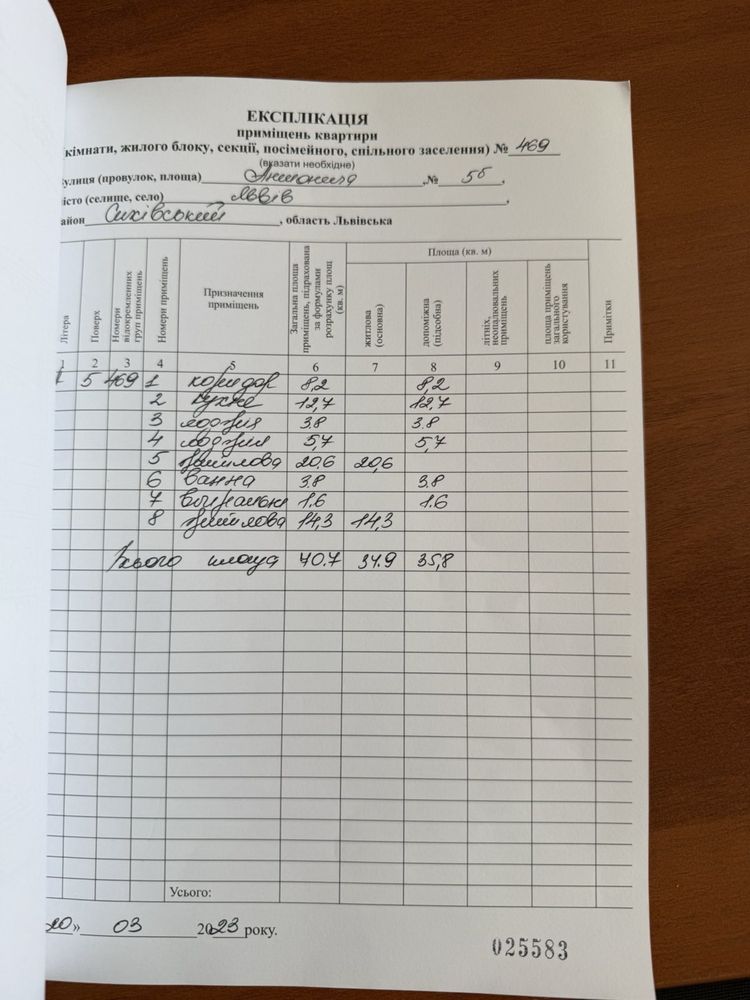 ЕКСПЛІКАЦІЯ
приміщень квартири
(кімнати, жилого блоку, секції, посімейного, спільного заселення) № 469
(вказати необхідне)
улиця (провулок, площа) , № 5б ,
істо (селище, село) Львів ,
айон Сихівський , область Львівська
Літера
Поверх
Номери відокремлених груп приміщень
Номери приміщень
Призначення приміщень
Загальна площа приміщень, підрахована за формулами розрахунку площ (кв. м)
Площа (кв. м)
житлова (основна)
допоміжна (підсобна)
літніх, неопалювальних приміщень
площа приміщень загального користування
Примітки
1 2 3 4 5 6 7 8 9 10 11
5 469 1 коридор 8,2 8,2
2 кухня 12,7 12,7
3 лоджия 3.8 3.8
4 лоджия 5,7 5,7
5 житлова 20.6 20,6
6 ванна 3.8 3.8
7 вбиральня 1.6 1.6
8 житлова 14,3 14,3
Усього площа 70.7 34.9 35,8
Усього:
20» 03 2023 року.
025583